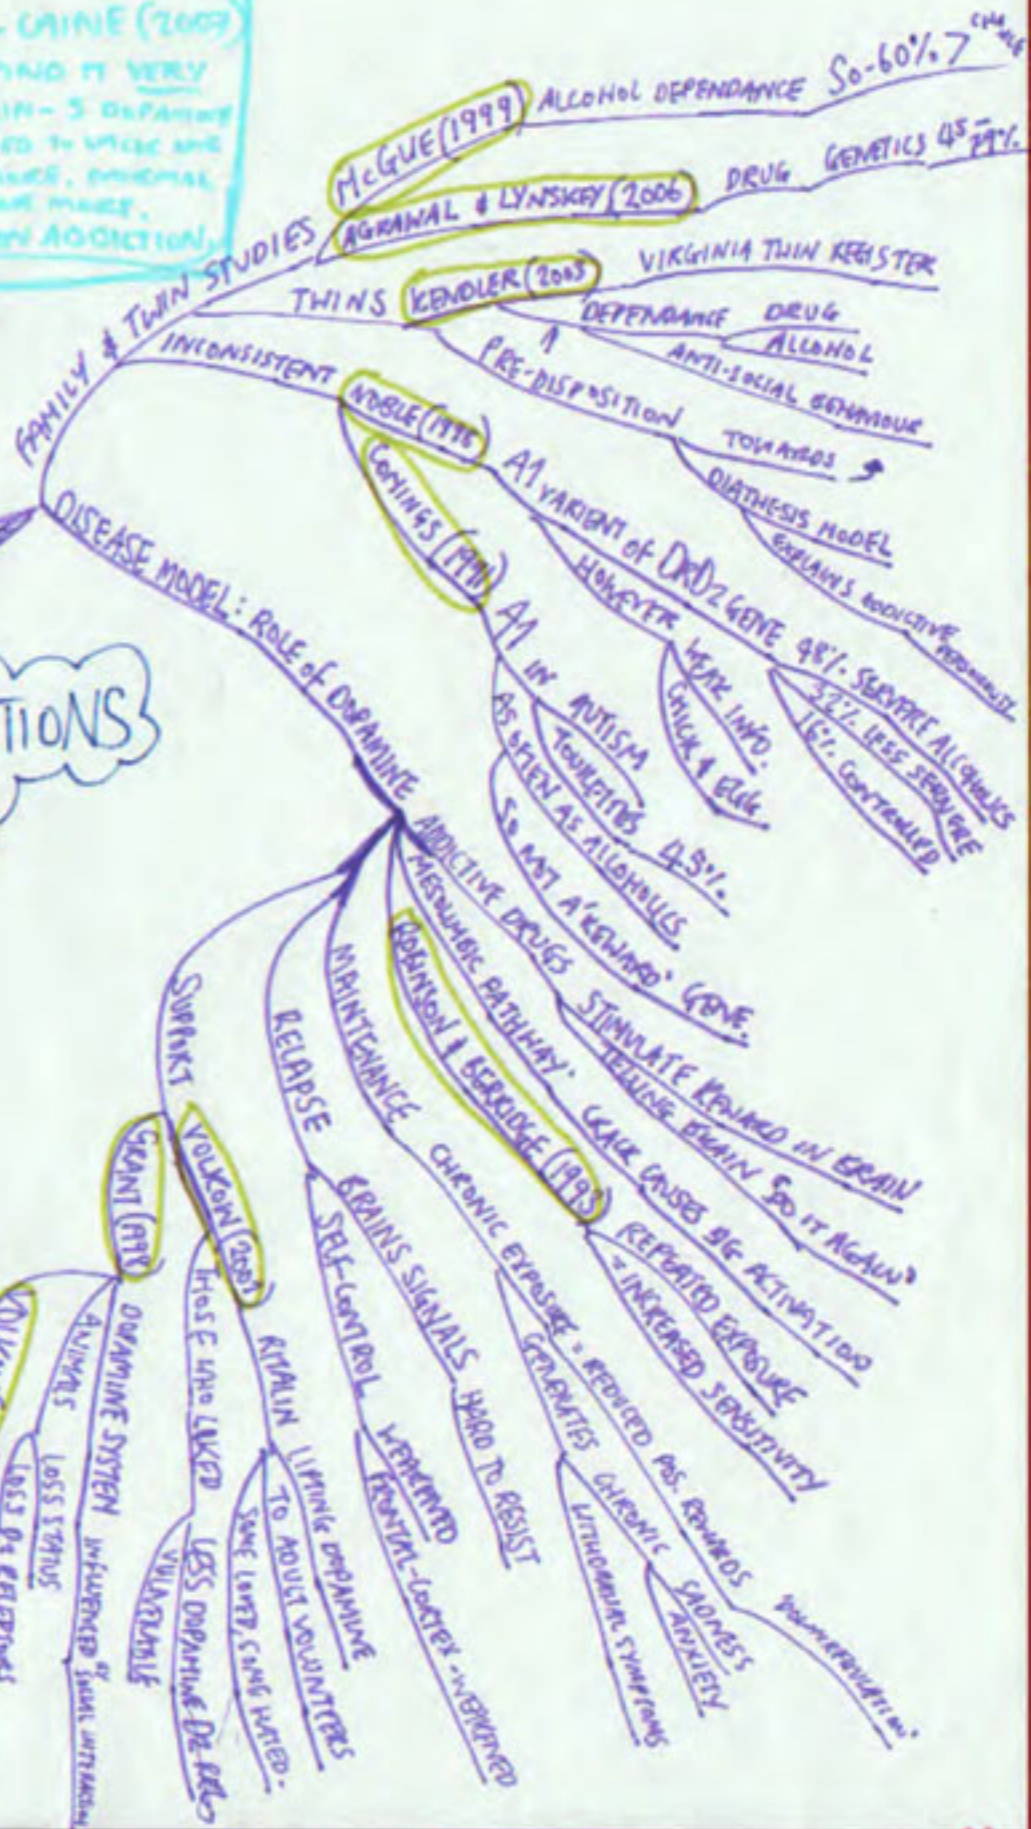 CAINE (2007)
FIND IT VERY
ADDICTION
McGUE (1999)
ALCOHOL DEPENDANCE
50-60%
FAMILY & TWIN STUDIES
AGRAWAL & LYNSKEY (2006)
DRUG
GENETICS 45-79%
TWINS
KENDLER (2003)
VIRGINIA TWIN REGISTER
DEPENDANCE
DRUG
ALCOHOL
ANTI-SOCIAL BEHAVIOUR
PRE-DISPOSITION
TOWARDS
DIATHESIS MODEL
EXPLAINS ADDICTIVE PERSONALITY
INCONSISTENT
NOBLE
A1 VARIENT OF DRD2 GENE
48% SERVERE ALCOHOLICS
32% LESS SERVERE
16% CONTROLLED
HOWEVER
WEAK INFO.
CHICK & EGG.
COMINGS
A1 IN
AUTISM
TOURETTES 45%
AS OFTEN AS ALCOHOLICS
SO NOT A 'REWARD' GENE.
DISEASE MODEL: ROLE OF DOPAMINE
TIONS
ADDICTIVE DRUGS
STIMULATE REWARD IN BRAIN
TELLING BRAIN "DO IT AGAIN"
MESOLIMBIC PATHWAY.
CRACK CAUSES BIG ACTIVATION
ROBINSON & BERRIDGE (1993)
REPEATED EXPOSURE
= INCREASED SENSITIVITY
MAINTENANCE
CHRONIC EXPOSURE = REDUCED POS. REWARDS
GENERATES CHRONIC
SADNESS
ANXIETY
WITHDRAWAL SYMPTOMS
RELAPSE
BRAINS SIGNALS HARD TO RESIST
SELF-CONTROL
WEAKENED
FRONTAL-CORTEX-WEAKENED
SUPPORT
VOLKOW
RITALIN
LIFTING DOPAMINE
TO ADULT VOLUNTEERS
SOME LOVED, SOME HATED.
THOSE WHO LIKED
LESS DOPAMINE D2 REC
VULNERABLE
GRANT
DOPAMINE SYSTEM INFLUENCED BY SOCIAL INTERACTION
ANIMALS
LOSS STATUS
LOSS D2 RECEPTORS